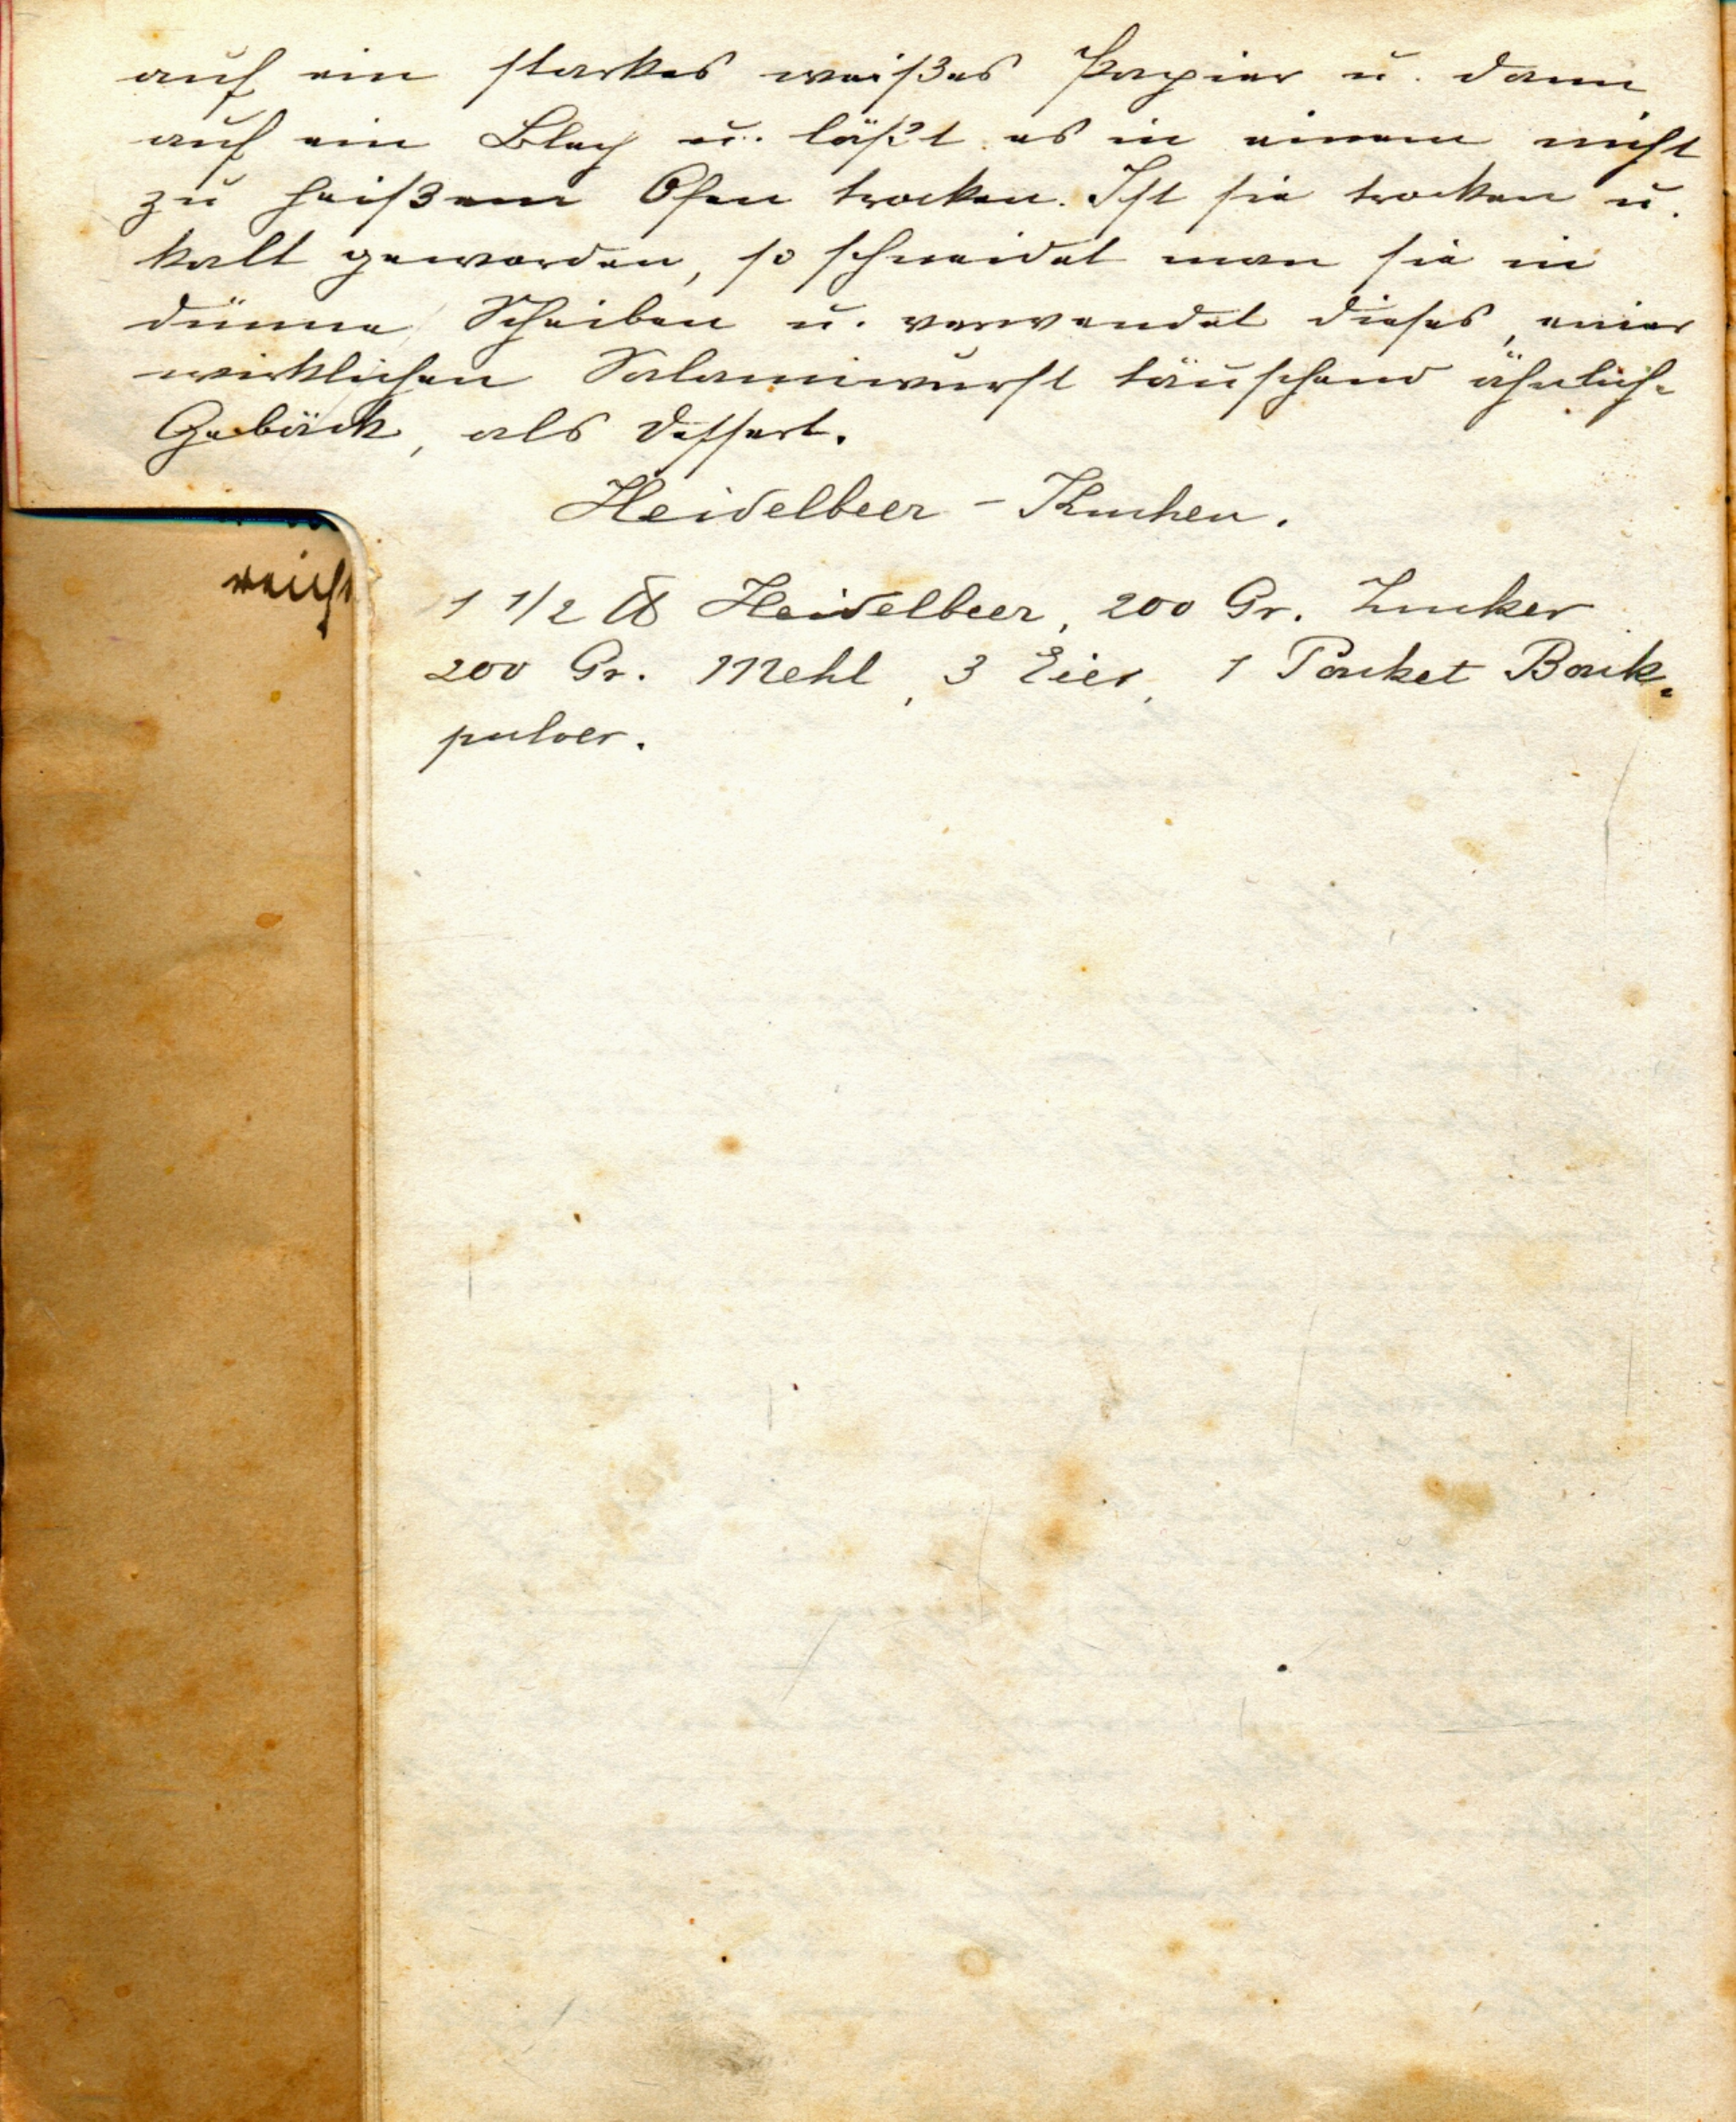 auf ein starkes weißes Papier u. dann
auf ein Blech u. läßt es in einem nicht
zu heißem Ofen trocken. Ist sie trocken u.
kalt geworden, so schneidet man sie in
dünne Scheiben u. verwendet dieses, einer
wirklichen Salamiwurst täuschend ähnliche
Gebäck, als Dessert.
Heidelbeer - Kuchen.
reicht
1 1/2 ℔ Heidelbeer, 200 Gr. Zucker
200 Gr. Mehl, 3 Eier, 1 Packet Back-
pulver.